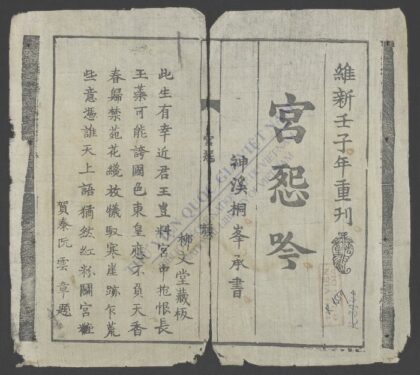 維新壬子年重刊
宮怨吟
神溪桐峯承書
柳文堂藏板
宮怨
此生有幸近君王豈料宮中抱恨長
玉可能誇國色東皇應不負天香
春歸禁苑花纔放馭寒崖跡乍荒
些意憑誰天上語猶然紅粉鬪宮粧
賀泰阮雲章題
THƯ VIỆN QUỐC GIA VIỆT NAM